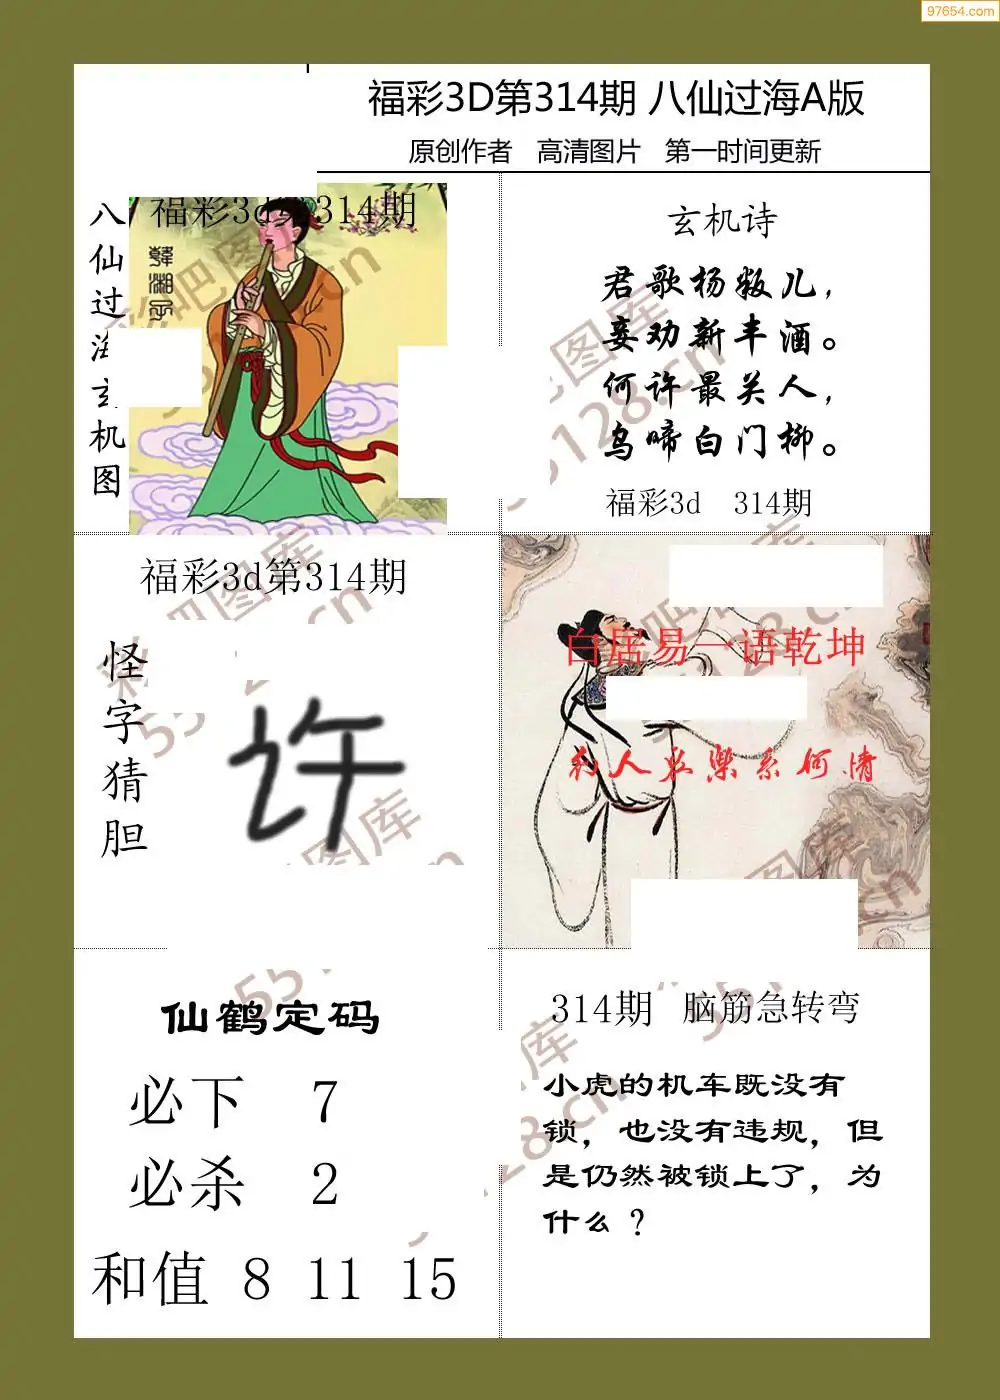 97654.com
福彩3D第314期 八仙过海A版
原创作者 高清图片 第一时间更新
八仙过海玄机图
福彩3d第314期
韩湘子
玄机诗
君歌杨叛儿，
妾劝新丰酒。
何许最关人，
乌啼白门柳。
福彩3d 314期
福彩3d第314期
怪字猜胆
许
白居易一语乾坤
仙鹤定码
必下 7
必杀 2
和值 8 11 15
314期 脑筋急转弯
小虎的机车既没有
锁，也没有违规，但
是仍然被锁上了，为
什么？